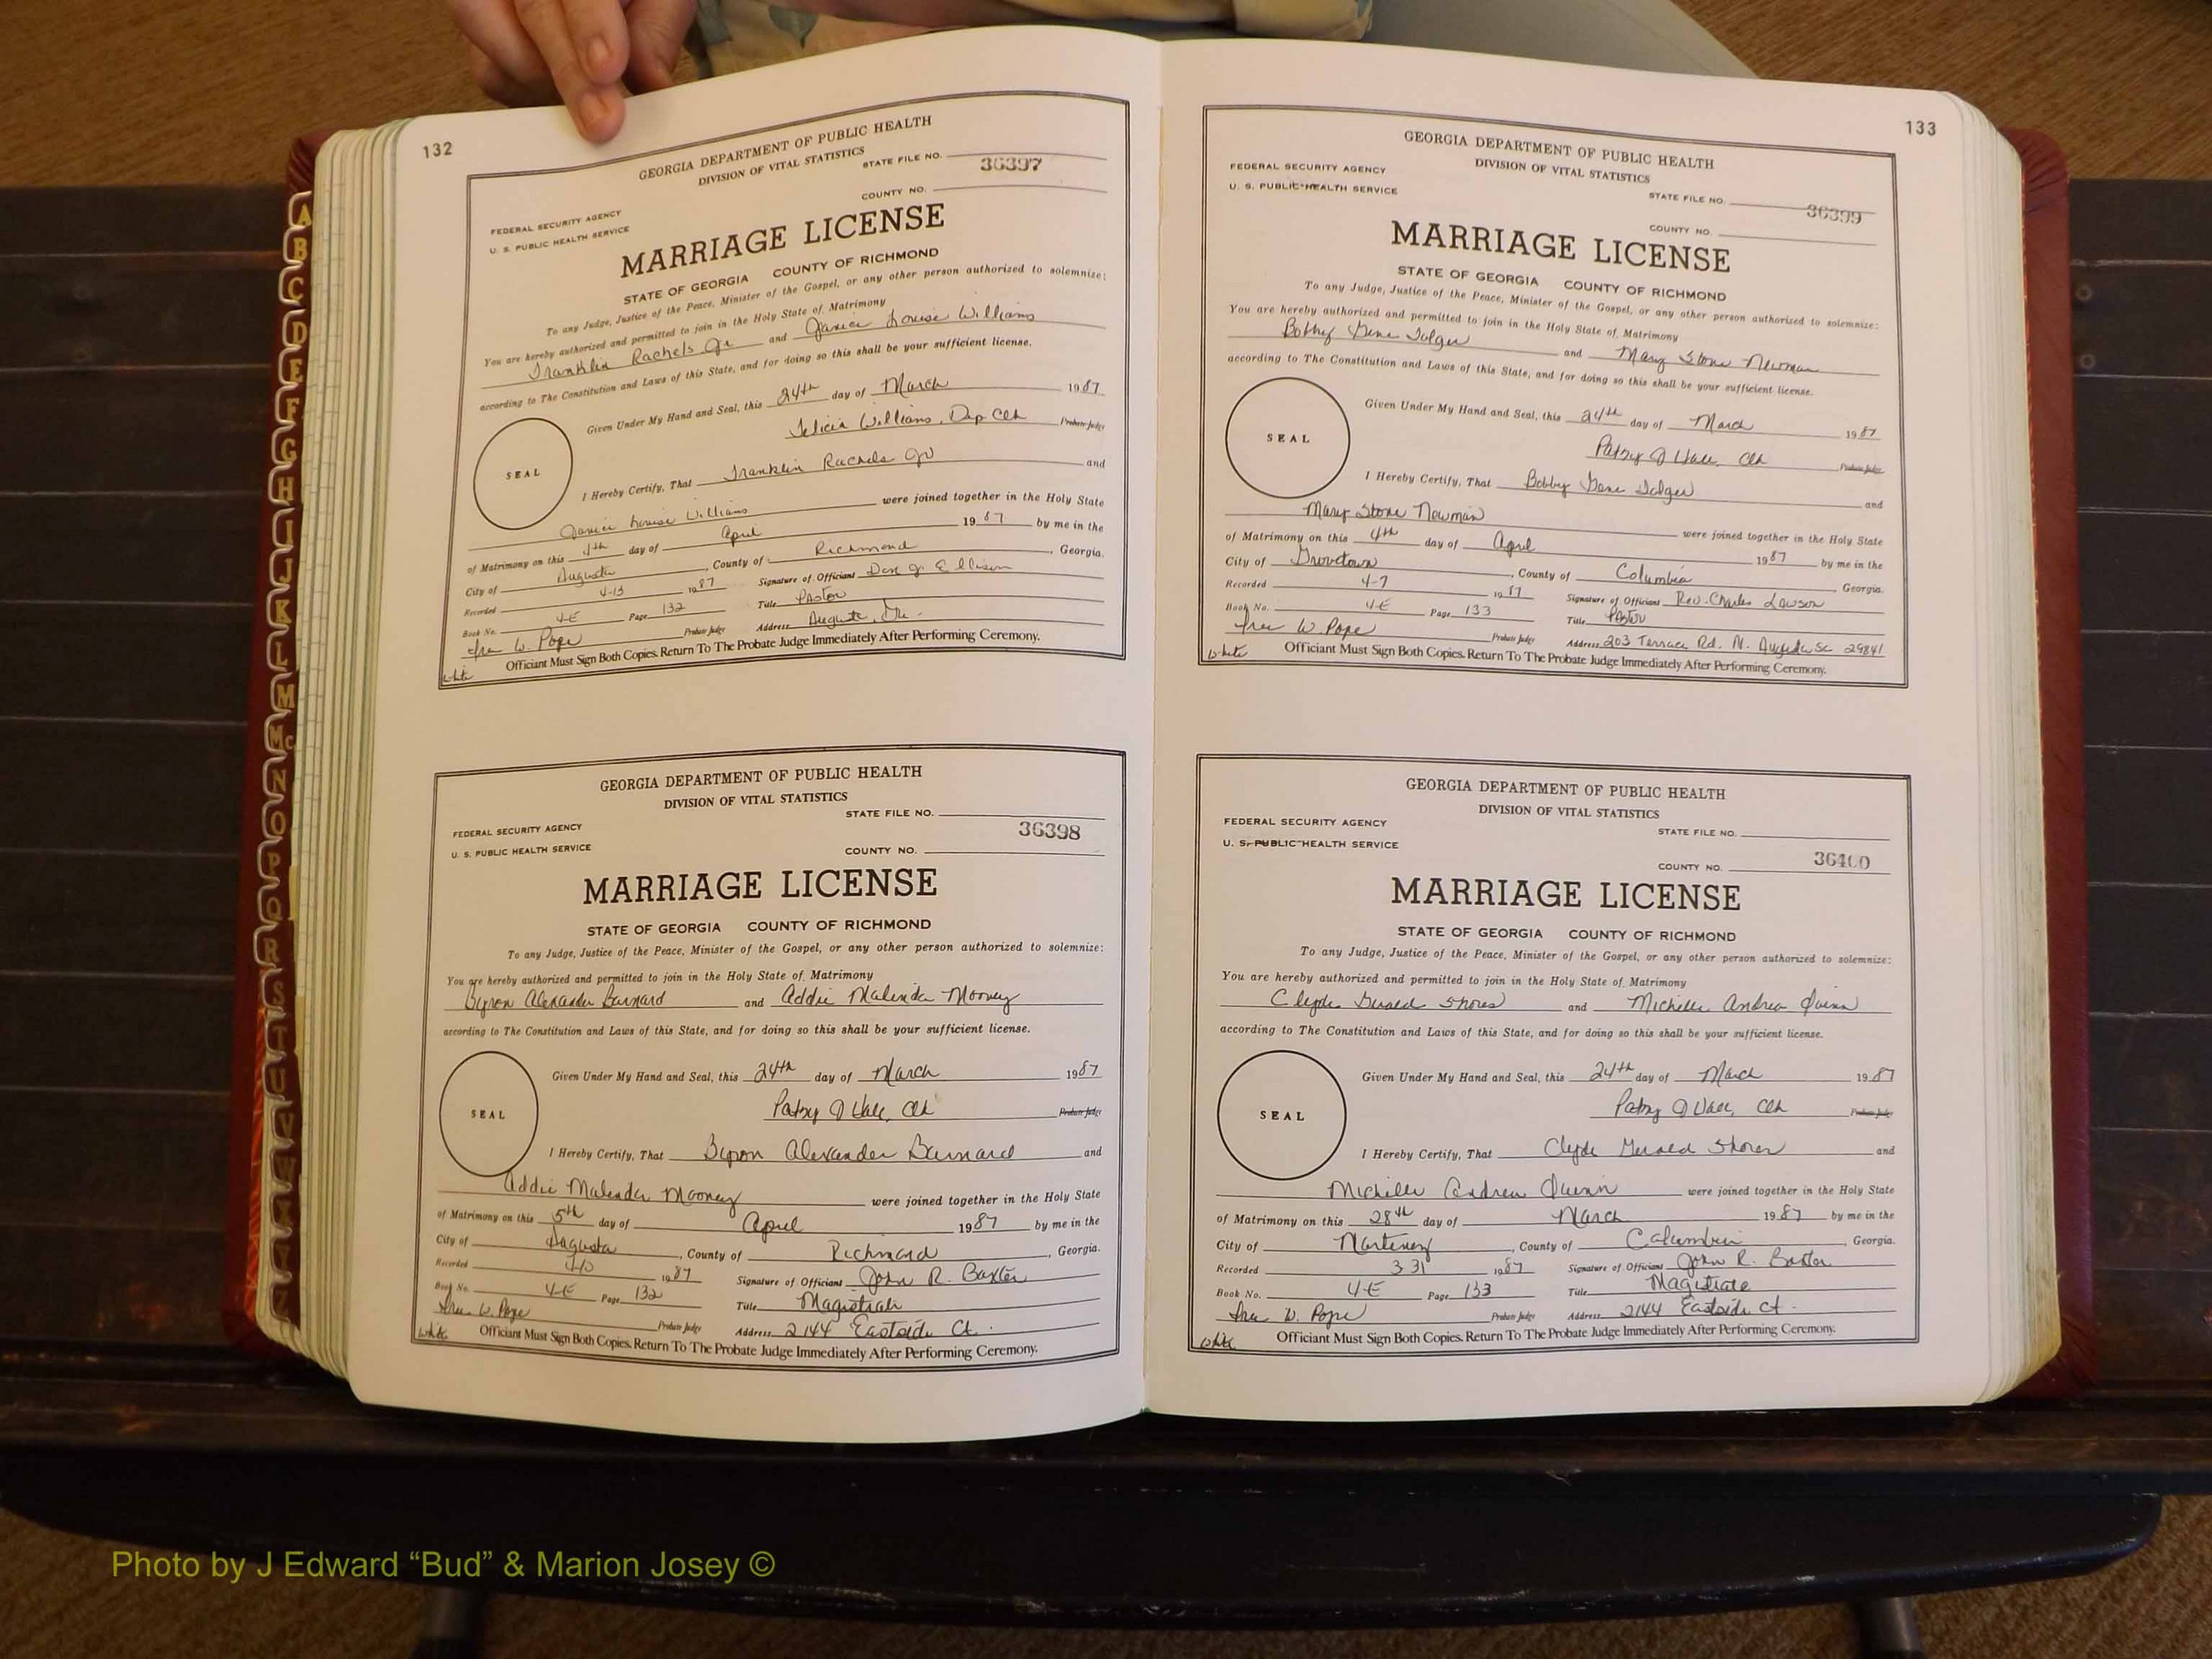 132
GEORGIA DEPARTMENT OF PUBLIC HEALTH
DIVISION OF VITAL STATISTICS
STATE FILE NO. 36397
COUNTY NO.
FEDERAL SECURITY AGENCY
U. S. PUBLIC HEALTH SERVICE
MARRIAGE LICENSE
STATE OF GEORGIA COUNTY OF RICHMOND
To any Judge, Justice of the Peace, Minister of the Gospel, or any other person authorized to solemnize:
You are hereby authorized and permitted to join in the Holy State of Matrimony
Franklin Rachels Jr and Janice Louise Williams
according to The Constitution and Laws of this State, and for doing so this shall be your sufficient license.
Given Under My Hand and Seal, this 24th day of March 1987
Felicia Williams, Dep Clk Probate Judge
SEAL
I Hereby Certify, That Franklin Rachels Jr and
Janice Louise Williams were joined together in the Holy State
of Matrimony on this day of April 1987 by me in the
City of Augusta, County of Richmond, Georgia.
Recorded 4-13 1987 Signature of Officiant
Book No. 4-E Page 132 Title Pastor
W. Pope Probate Judge Address Augusta, Ga.
White Officiant Must Sign Both Copies. Return To The Probate Judge Immediately After Performing Ceremony.
GEORGIA DEPARTMENT OF PUBLIC HEALTH
DIVISION OF VITAL STATISTICS
STATE FILE NO.
36398
FEDERAL SECURITY AGENCY
U. S. PUBLIC HEALTH SERVICE
COUNTY NO.
MARRIAGE LICENSE
STATE OF GEORGIA COUNTY OF RICHMOND
To any Judge, Justice of the Peace, Minister of the Gospel, or any other person authorized to solemnize:
You are hereby authorized and permitted to join in the Holy State of Matrimony
Byron Alexander Barnard and Addie Malenda Mooney
according to The Constitution and Laws of this State, and for doing so this shall be your sufficient license.
Given Under My Hand and Seal, this 24th day of March 1987
Patsy J Hall, Clk Probate Judge
SEAL
I Hereby Certify, That Byron Alexander Barnard and
Addie Malenda Mooney were joined together in the Holy State
of Matrimony on this 5th day of April 1987 by me in the
City of Augusta, County of Richmond, Georgia.
Recorded 4-10 1987 Signature of Officiant John R. Baxter
Book No. 4-E Page 132 Title Magistrate
W. Pope Probate Judge Address 2144 Eastside Ct.
White Officiant Must Sign Both Copies. Return To The Probate Judge Immediately After Performing Ceremony.
133
GEORGIA DEPARTMENT OF PUBLIC HEALTH
DIVISION OF VITAL STATISTICS
FEDERAL SECURITY AGENCY
U. S. PUBLIC HEALTH SERVICE
STATE FILE NO. 36399
COUNTY NO.
MARRIAGE LICENSE
STATE OF GEORGIA COUNTY OF RICHMOND
To any Judge, Justice of the Peace, Minister of the Gospel, or any other person authorized to solemnize:
You are hereby authorized and permitted to join in the Holy State of Matrimony
Bobby Gene and Mary Stone Newman
according to The Constitution and Laws of this State, and for doing so this shall be your sufficient license.
Given Under My Hand and Seal, this 24th day of March 1987
Patsy J Hall, Clk Probate Judge
SEAL
I Hereby Certify, That Bobby Gene and
Mary Stone Newman were joined together in the Holy State
of Matrimony on this 4th day of April 1987 by me in the
City of Grovetown, County of Columbia, Georgia.
Recorded 4-7 1987 Signature of Officiant Rev. Charles Lawson
Book No. 4-E Page 133 Title Pastor
W. Pope Probate Judge Address 203 Terrace Rd. N. Augusta SC 29841
White Officiant Must Sign Both Copies. Return To The Probate Judge Immediately After Performing Ceremony.
GEORGIA DEPARTMENT OF PUBLIC HEALTH
DIVISION OF VITAL STATISTICS
FEDERAL SECURITY AGENCY
U. S. PUBLIC HEALTH SERVICE
STATE FILE NO.
COUNTY NO. 36400
MARRIAGE LICENSE
STATE OF GEORGIA COUNTY OF RICHMOND
To any Judge, Justice of the Peace, Minister of the Gospel, or any other person authorized to solemnize:
You are hereby authorized and permitted to join in the Holy State of Matrimony
Clyde Gerald Shores and Michelle Andrea Quinn
according to The Constitution and Laws of this State, and for doing so this shall be your sufficient license.
Given Under My Hand and Seal, this 24th day of March 1987
Patsy J Hall, Clk Probate Judge
SEAL
I Hereby Certify, That Clyde Gerald Shores and
Michelle Andrea Quinn were joined together in the Holy State
of Matrimony on this 28th day of March 1987 by me in the
City of Martinez, County of Columbia, Georgia.
Recorded 3 31 1987 Signature of Officiant John R. Baxter
Book No. 4-E Page 133 Title Magistrate
W. Pope Probate Judge Address 2144 Eastside Ct.
White Officiant Must Sign Both Copies. Return To The Probate Judge Immediately After Performing Ceremony.
A
B
C
D
E
F
G
H
I
J
K
L
M
Mc
N
O
P
Q
R
S
T
U
V
W
X
Y
Z
Photo by J Edward “Bud” & Marion Josey ©